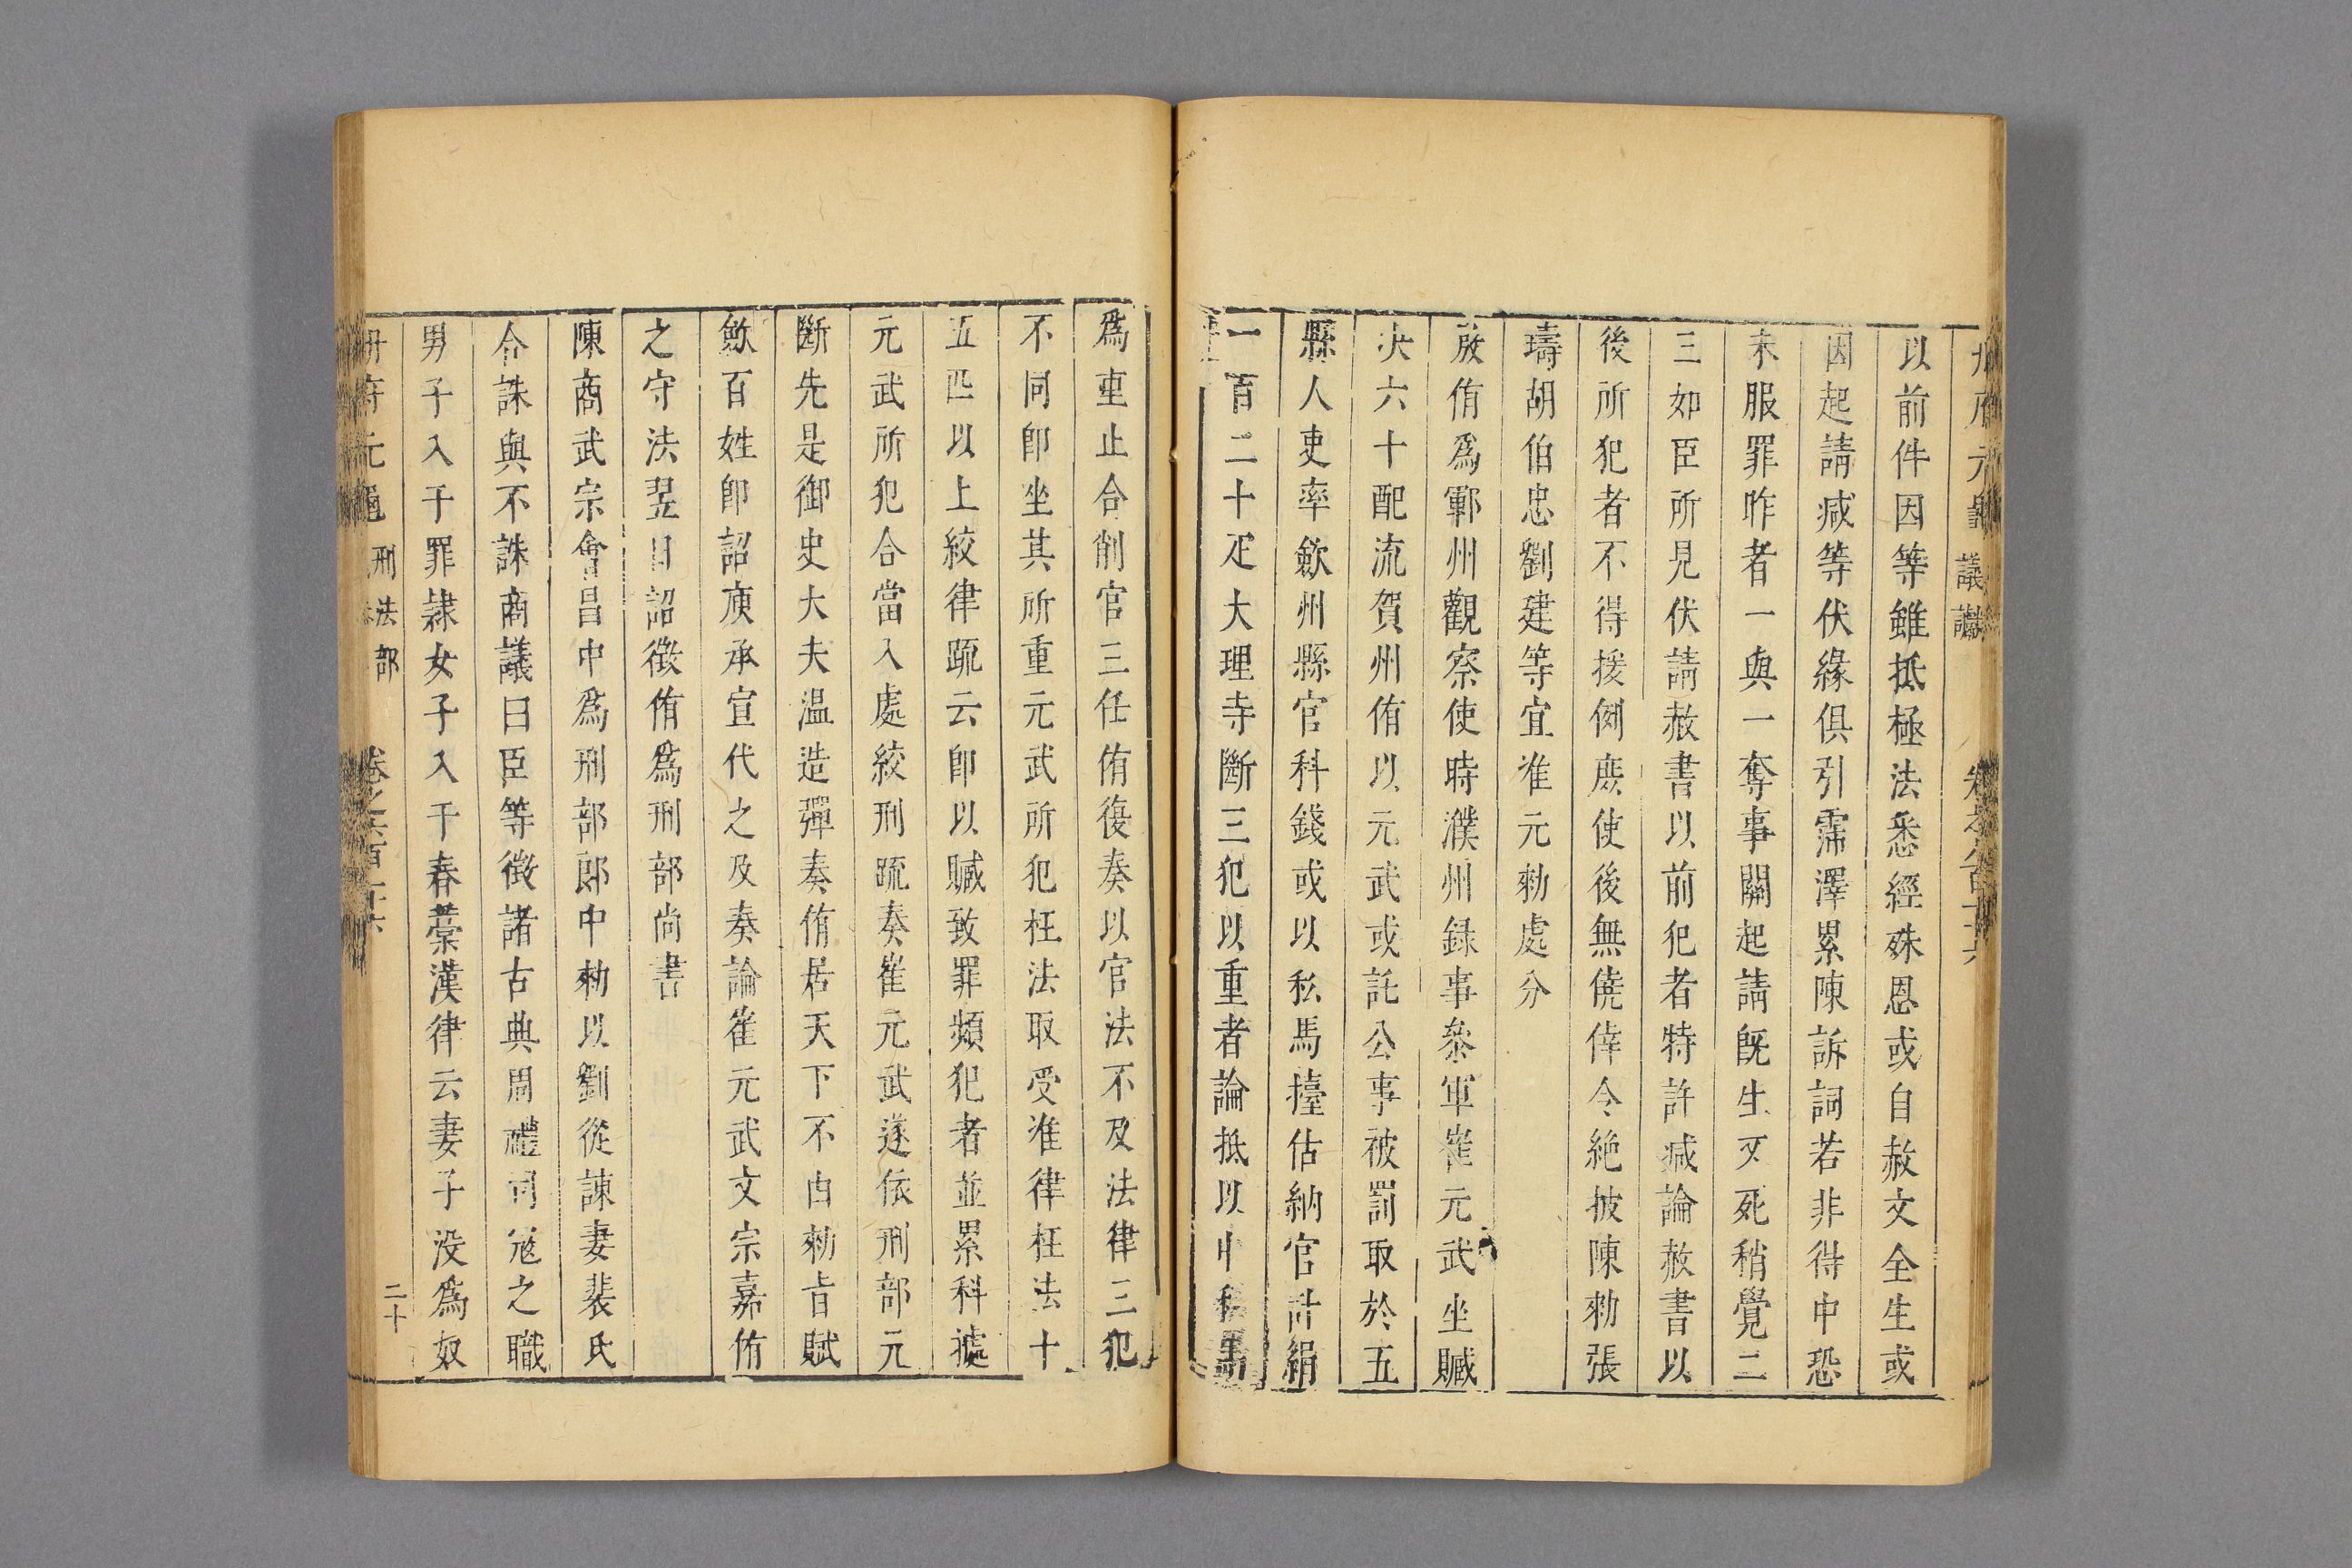 冊府元龜 議讞 卷之六百十六
以前件因等雖抵極法悉經殊恩或自赦文全生或
因起請减等伏緣俱引霈澤累陳訴詞若非得中恐
未服罪昨者一與一奪事關起請旣生又死稍覺二
三如臣所見伏請赦書以前犯者特許减論赦書以
後所犯者不得援例庶使後無僥倖令絶披陳勑張
璹胡伯忠劉建等宜准元勑處分
殷侑爲鄆州觀察使時濮州録事叅軍崔元武坐贓
决六十配流賀州侑以元武或託公事被罰取於五
縣人吏率歛州縣官科錢或以私馬擡估納官計絹
一百二十疋大理寺斷三犯以重者論抵以中私馬
爲重止合削官三任侑復奏以官法不及法律三犯
不同卽坐其所重元武所犯枉法取受准律枉法十
五匹以上絞律疏云卽以贓致罪頻犯者並累科據
元武所犯合當入處絞刑疏奏崔元武遂依刑部元
斷先是御史大夫温造彈奏侑居天下不由勑旨賦
歛百姓卽詔庾承宣代之及奏論崔元武文宗嘉侑
之守法翌日詔徵侑爲刑部尚書
陳商武宗會昌中爲刑部郎中勑以劉從諫妻裴氏
合誅與不誅商議曰臣等徵諸古典周禮司宼之職
男子入于罪隷女子入于舂槀漢律云妻子没爲奴
冊府元龜 刑法部 卷之六百十六 二十